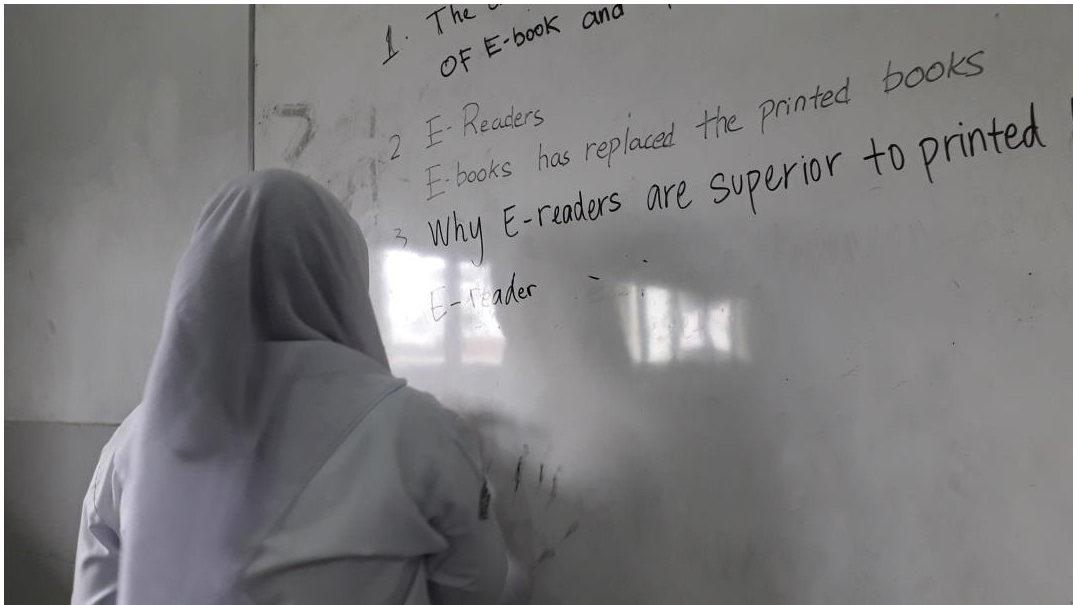 1. The
OF E-book and
2 E-Readers
E-books has replaced the printed books
3 Why E-readers are superior to printed
E-reader